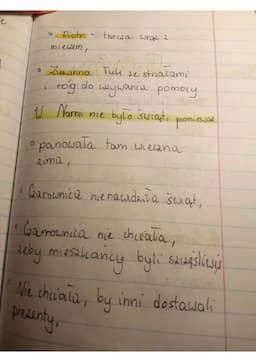 • Piotr - tarcza wraz z
mieczem,
• Zuzanna: Łuk ze strzałami
i róg do wzywania pomocy
W Narnii nie było świąt, ponieważ
• panowała tam wieczna
zima,
• Czarownica nienawdziła świąt,
• Czarownica nie chciała,
żeby mieszkańcy byli szczęśliwi
• Nie chciała, by inni dostawali
prezenty.